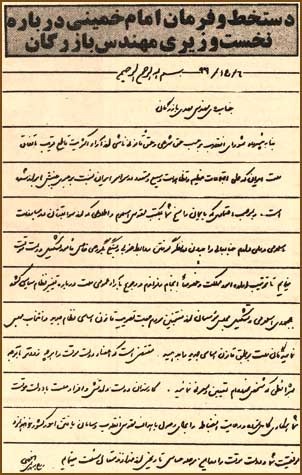 دستخط و فرمان امام خمینی درباره
نخست وزیری مهندس بازرگان
بسم الله الرحمن الرحیم ۶ / ع۱ / ۹۹
جناب آقای مهندس مهدی بازرگان
بنا به پیشنهاد شورای انقلاب برحسب حق شرعی و حق قانونی ناشی از آراء اکثریت قاطع قریب به اتفاق
ملت ایران که طی اجتماعات عظیم و تظاهرات وسیع و متعدد در سراسر ایران نسبت به رهبری جنبش ابراز شده
است و بموجب اعتمادی که به ایمان راسخ شما به مکتب مقدس اسلام و اطلاعی که از سوابقتان در مبارزات
اسلامی و ملی دارم جنابعالی را بدون در نظر گرفتن روابط حزبی و بستگی به گروهی خاص مامور تشکیل دولت موقت
مینمایم تا ترتیب اداره امور مملکت و خصوصا انجام رفراندم و رجوع به آراء عمومی ملت درباره تغییر نظام سیاسی کشور
جمهوری اسلامی و تشکیل مجلس موسسان از منتخبین مردم جهت تصویب قانون اساسی نظام جدید و انتخاب مجلس
نمایندگان ملت بر طبق قانون اساسی جدید را بدهید مقتضی است که اعضاء دولت موقت را هرچه زودتر با توجه
به شرائطی که مشخص نموده‌ام تعیین و معرفی نمائید کارمندان دولت و ارتش و افراد ملت با دولت موقت
شما همکاری کامل نموده و رعایت انضباط را برای وصول به اهداف مقدس انقلاب و سامان یافتن امور کشور خواهند نمود
موفقیت شما و دولت موقت را در این مرحله حساس تاریخی از خداوند متعال مسئلت مینمایم